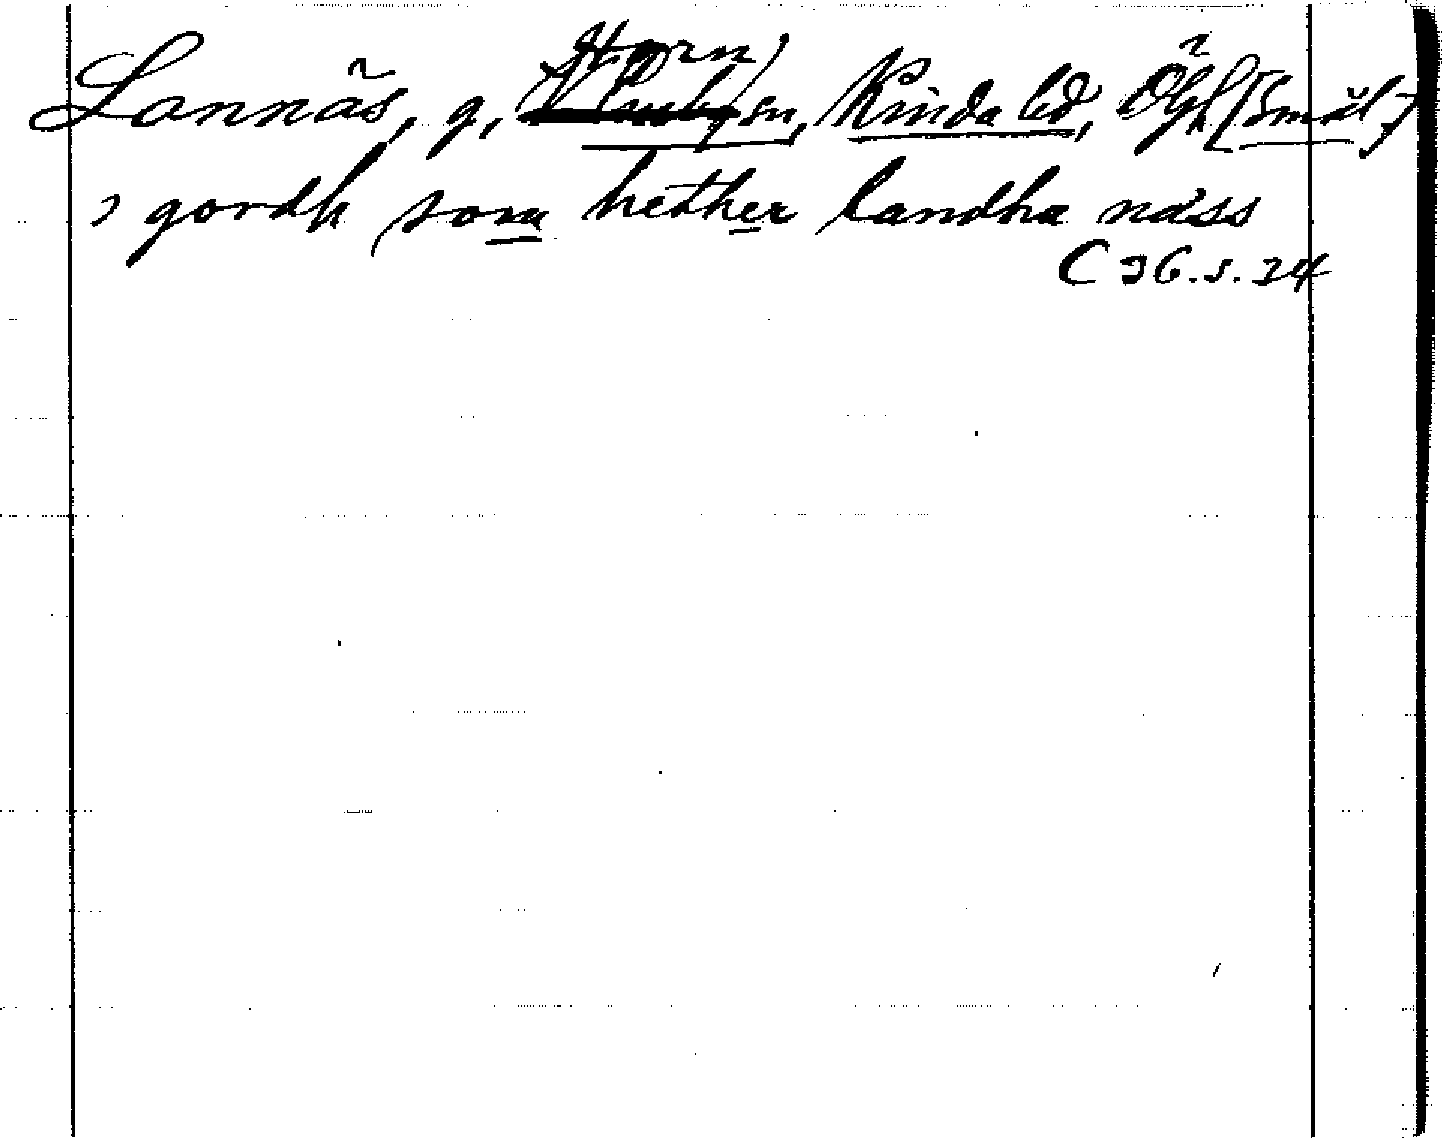 Horn,
Lannäs, g, sn, Kinda hd, Ögl (Smål)
1 gordh som hether landha näss
C 36. s. 24